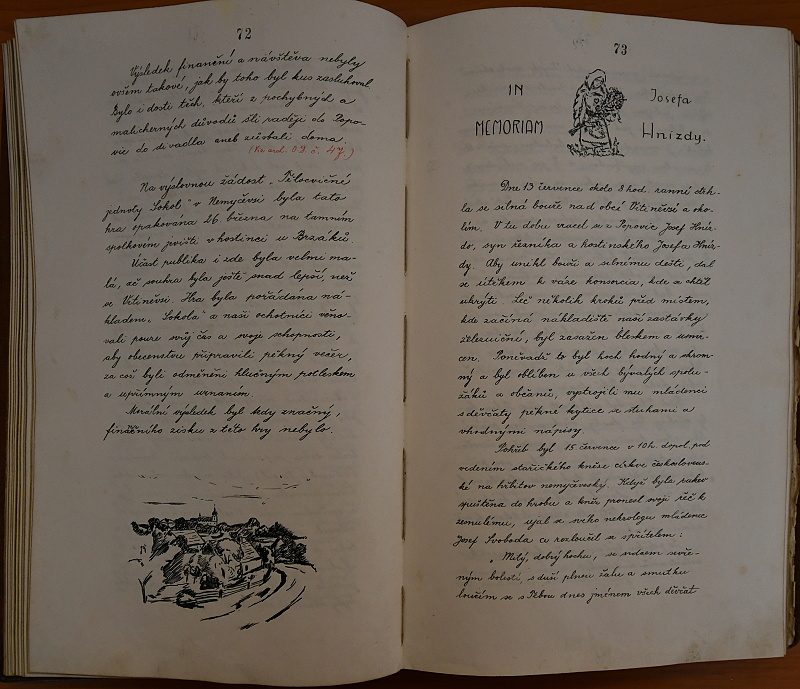 72
Výsledek finanční a návštěva nebyly
ovšem takové, jak by toho byl kus zasluhoval
Bylo i dosti těch, kteří z pochybných a
malicherných důvodů šli raději do Popo-
vic do divadla aneb zůstali doma.
(Kr. ard. O.D. č. 47.)
Na výslovnou žádost „Tělocvičné
jednoty Sokol" v Nemyčevsi byla tato
hra opakována 26. března na tamním
spolkovém jevišti v hostinci u Brzáků.
Účast publika i zde byla velmi ma-
lá, ač souhra byla ještě snad lepší, než
ve Vitiněvsi. Hra byla pořádána ná-
kladem „Sokola" a naši ochotníci věno-
vali pouze svůj čas a svoje schopnosti,
aby obecenstvu připravili pěkný večer,
za což byli odměněni hlučným potleskem
a upřímným uznáním.
Morální výsledek byl tedy značný,
finančního zisku z této hry nebylo.
73
IN
MEMORIAM
Josefa
Hnízdy.
Dne 13 července okolo 8 hod. ranní strh-
la se silná bouře nad obcí Vitiněvsí a oko-
lím. V tu dobu vracel se z Popovic Josef Hníz-
do, syn řezníka a hostinského Josefa Hníz-
dy. Aby unikl bouři a silnému dešti, dal
se útěkem k váze konsorcia, kde se chtěl
ukrýti. Leč několik kroků před místem,
kde začíná nákladiště naší zastávky
železniční, byl zasažen bleskem a usmr-
cen. Poněvadž to byl hoch hodný a skrom-
ný a byl oblíben u všech bývalých spolu-
žáků a občanů, vystrojili mu mládenci
s děvčaty pěkné kytice se stuhami a
vhodnými nápisy.
Pohřeb byl 15. července v 10h. dopol. pod
vedením stařičkého kněze církve českosloven-
ské na hřbitov nemyčevský. Když byla rakev
spuštěna do hrobu a kněz pronesl svoji řeč k
zemulému, ujal se svého nekrologu mládenec
Josef Svoboda a rozloučil se s přítelem:
„Milý, dobrý hochu, se srdcem svíra-
ným bolestí, s duší plnou žalu a smutku
loučím se s Tebou dnes jménem všech děvčat